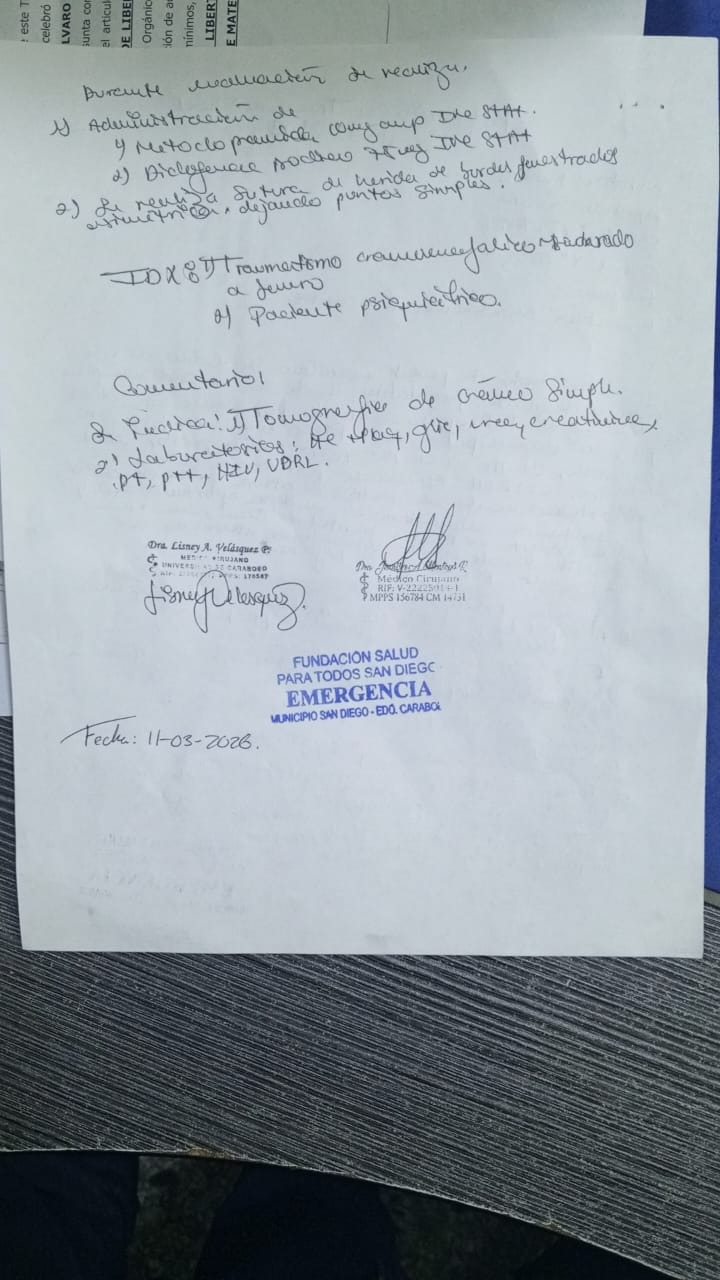 este T
celebró
LVARO
sunta con
el articul
DE LIBE
Orgánic
ción de a
mínimos,
LIBERT
E MATE
Durante evaluación se realiza.
1) Administración de
1) Metoclopramida comg amp Dve STAT.
2) Diclofenaco sodico 75mg Dve STAT
2) Se realiza sutura de herida de bordes fenestrados
asimetrica, dejando puntos simples.
IDX: 1) Traumatismo craneoencefalico moderado
a severo
2) Paciente psiquiatrico.
Comentario:
Se indica: 1) Tomografia de cráneo simple.
2) Laboratorios: glic, urea y creatinina,
PT, PTT, HIV, VDRL.
Dra. Lisney A. Velásquez P.
MEDICO CIRUJANO
UNIVERSIDAD DE CARABOBO
Lisney Velasquez.
Médico Cirujano
MPPS 156784 CM 14731
FUNDACIÓN SALUD
PARA TODOS SAN DIEGO
EMERGENCIA
MUNICIPIO SAN DIEGO - EDO. CARABO
Fecha: 11-03-2026.